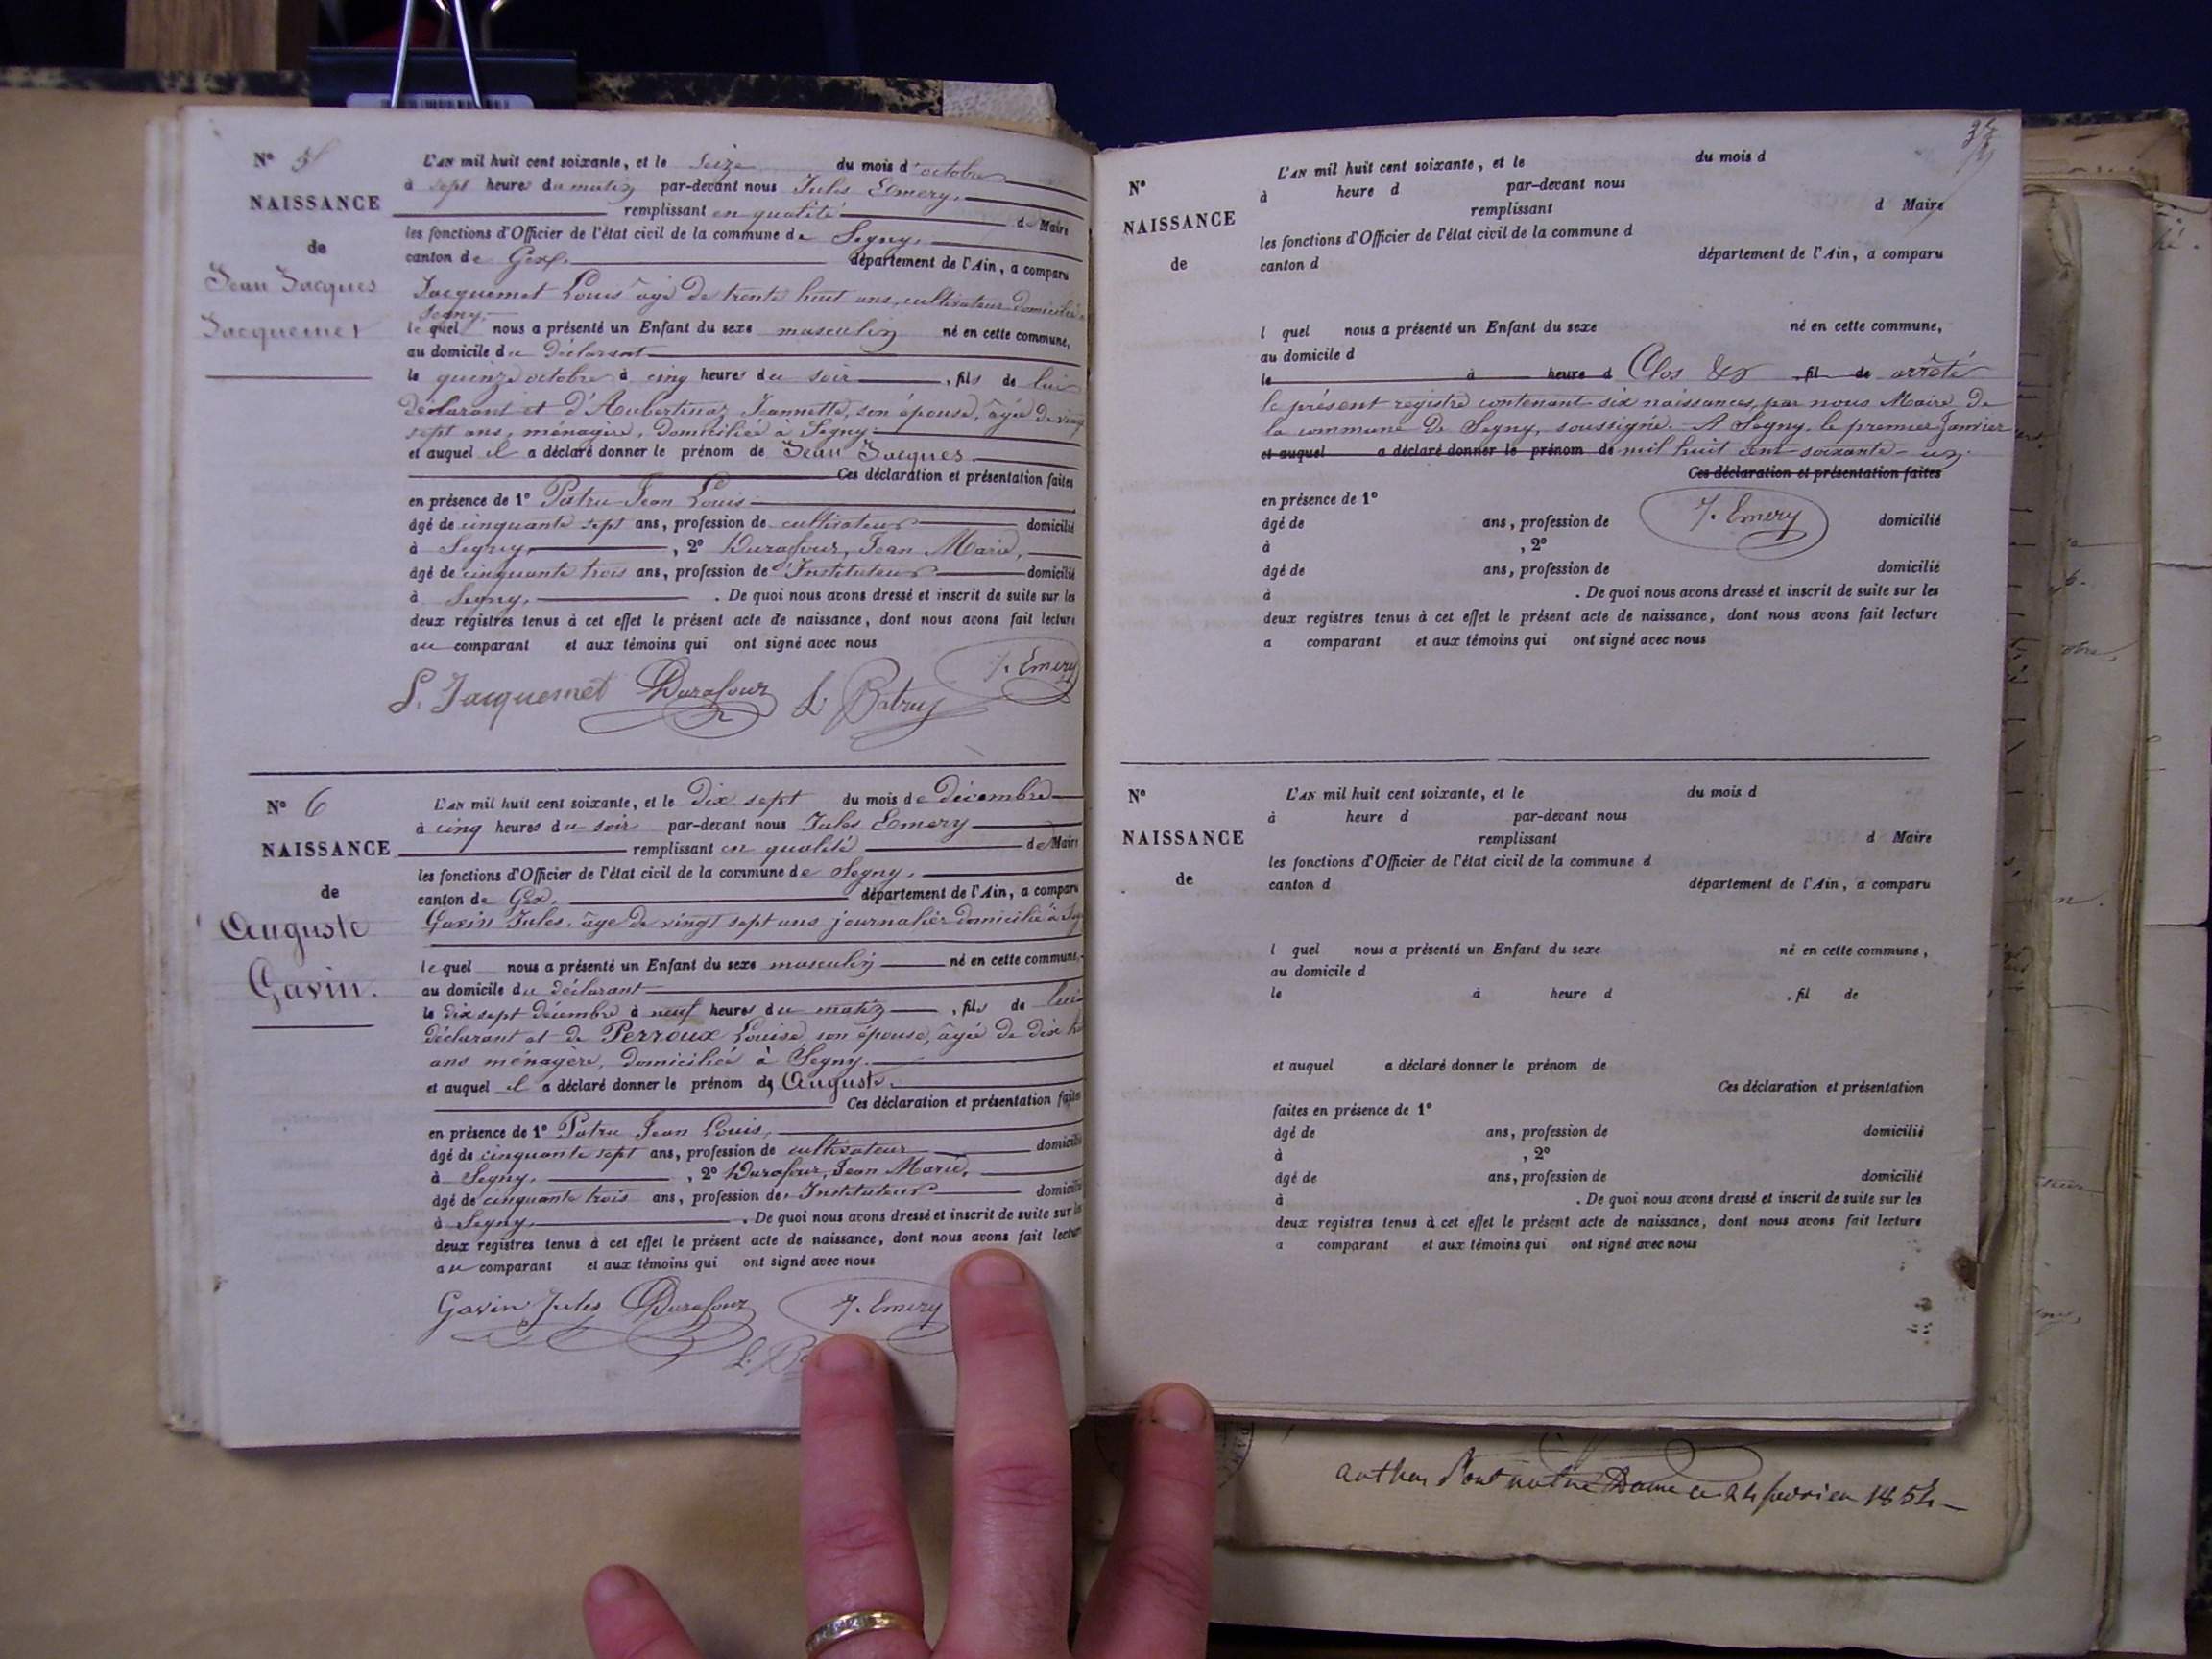 N° 5
NAISSANCE
de
Jean Jacques
Jacquemet
L'AN mil huit cent soixante, et le Seize du mois d'octobre
à sept heures du matin par-devant nous Jules Emery,
remplissant en qualité de Maire
les fonctions d'Officier de l'état civil de la commune de Segny,
canton de Gex, département de l'Ain, a comparu
Jacquemet Louis âgé de trente huit ans, cultivateur domicilié à
Segny,
lequel nous a présenté un Enfant du sexe masculin né en cette commune,
au domicile du déclarant
le quinze octobre à cinq heures du soir, fils de lui
déclarant et d'Aubertinaz Jeannette, son épouse, âgée de vingt
sept ans, ménagère, domiciliée à Segny
et auquel il a déclaré donner le prénom de Jean Jacques
Ces déclaration et présentation faites
en présence de 1° Patru Jean Louis
âgé de cinquante sept ans, profession de cultivateur domicilié
à Segny, 2° Durafour, Jean Marie,
âgé de cinquante trois ans, profession de Instituteur domicilié
à Segny. De quoi nous avons dressé et inscrit de suite sur les
deux registres tenus à cet effet le présent acte de naissance, dont nous avons fait lecture
au comparant et aux témoins qui ont signé avec nous
L. Jacquemet Durafour L. Patru J. Emery
N° 6
NAISSANCE
de
Auguste
Gavin.
L'AN mil huit cent soixante, et le Dix sept du mois de Décembre
à cinq heures du soir par-devant nous Jules Emery
remplissant en qualité de Maire
les fonctions d'Officier de l'état civil de la commune de Segny,
canton de Gex, département de l'Ain, a comparu
Gavin Jules, âgé de vingt sept ans journalier domicilié à
lequel nous a présenté un Enfant du sexe masculin né en cette commune,
au domicile du déclarant
le dix sept décembre à neuf heures du matin, fils de lui
déclarant et de Perroux Louise, son épouse, âgée de dix
ans ménagère, domiciliée à Segny.
et auquel il a déclaré donner le prénom de Auguste.
Ces déclaration et présentation faites
en présence de 1° Patru Jean Louis,
âgé de cinquante sept ans, profession de cultivateur domicilié
à Segny, 2° Durafour, Jean Marie,
âgé de cinquante trois ans, profession de Instituteur domicilié
à Segny. De quoi nous avons dressé et inscrit de suite sur les
deux registres tenus à cet effet le présent acte de naissance, dont nous avons fait lecture
au comparant et aux témoins qui ont signé avec nous
Gavin Jules Durafour J. Emery
N°
NAISSANCE
de
L'AN mil huit cent soixante, et le du mois d
à heure d par-devant nous
remplissant d Maire
les fonctions d'Officier de l'état civil de la commune d
canton d département de l'Ain, a comparu
l quel nous a présenté un Enfant du sexe né en cette commune,
au domicile d
le à heure d Clos & , fil de arrêté
le présent registre contenant six naissances, par nous Maire de
la commune de Segny, soussigné. A Segny, le premier Janvier
et auquel a déclaré donner le prénom de mil huit cent soixante-un
Ces déclaration et présentation faites
en présence de 1°
J. Emery
âgé de ans, profession de domicilié
à , 2°
âgé de ans, profession de domicilié
à . De quoi nous avons dressé et inscrit de suite sur les
deux registres tenus à cet effet le présent acte de naissance, dont nous avons fait lecture
a comparant et aux témoins qui ont signé avec nous
N°
NAISSANCE
de
L'AN mil huit cent soixante, et le du mois d
à heure d par-devant nous
remplissant d Maire
les fonctions d'Officier de l'état civil de la commune d
canton d département de l'Ain, a comparu
l quel nous a présenté un Enfant du sexe né en cette commune,
au domicile d
le à heure d , fil de
et auquel a déclaré donner le prénom de
Ces déclaration et présentation
faites en présence de 1°
âgé de ans, profession de domicilié
à , 2°
âgé de ans, profession de domicilié
à . De quoi nous avons dressé et inscrit de suite sur les
deux registres tenus à cet effet le présent acte de naissance, dont nous avons fait lecture
a comparant et aux témoins qui ont signé avec nous